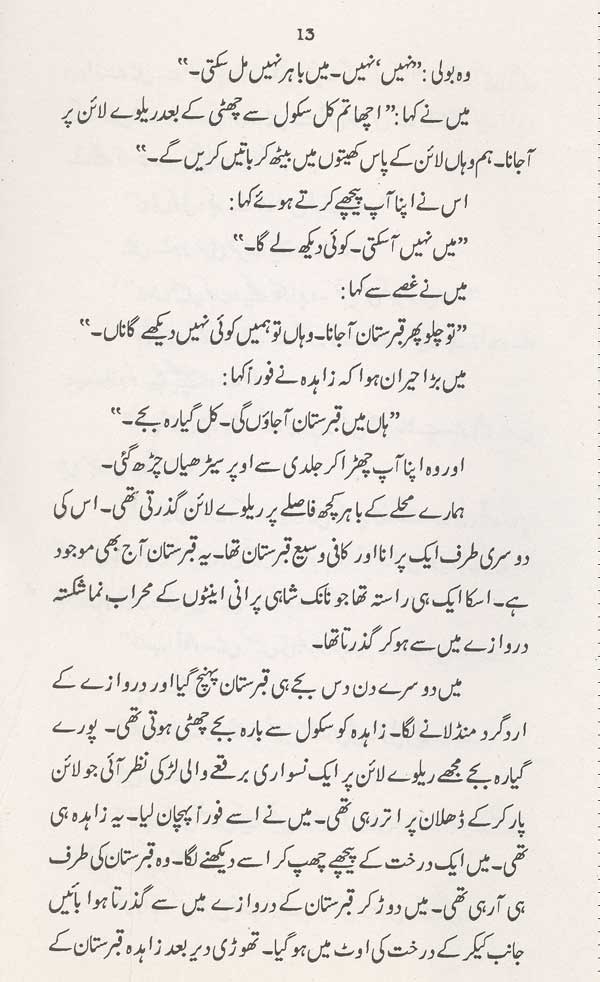 13
وہ بولی :”نہیں‘ نہیں۔ میں باہر نہیں مل سکتی۔“
میں نے کہا :” اچھا تم کل سکول سے چھٹی کے بعد ریلوے لائن پر
آجانا۔ ہم وہاں لائن کے پاس کھیتوں میں بیٹھ کر باتیں کریں گے۔“
اس نے اپنا آپ پیچھے کرتے ہوئے کہا :
”میں نہیں آسکتی۔ کوئی دیکھ لے گا۔“
میں نے غصے سے کہا :
”تو چلو پھر قبرستان آجانا۔ وہاں تو ہمیں کوئی نہیں دیکھے گا ناں۔“
میں بڑا حیران ہوا کہ زاہدہ نے فوراً کہا :
”ہاں میں قبرستان آجاؤں گی۔ کل گیارہ بجے۔“
اور وہ اپنا آپ چھڑا کر جلدی سے اوپر سیڑھیاں چڑھ گئی۔
ہمارے محلے کے باہر کچھ فاصلے پر ریلوے لائن گذرتی تھی۔ اس کی
دوسری طرف ایک پرانا اور کافی وسیع قبرستان تھا۔ یہ قبرستان آج بھی موجود
ہے۔ اسکا ایک ہی راستہ تھا جو نانک شاہی پرانی اینٹوں کے محراب نما شکستہ
دروازے میں سے ہو کر گذرتا تھا۔
میں دوسرے دن دس بجے ہی قبرستان پہنچ گیا اور دروازے کے
اردگرد منڈلانے لگا۔ زاہدہ کو سکول سے بارہ بجے چھٹی ہوتی تھی۔ پورے
گیارہ بجے مجھے ریلوے لائن پر ایک نسواری برقعے والی لڑکی نظر آئی جو لائن
پار کر کے ڈھلان پر اتر رہی تھی۔ میں نے اسے فوراً پہچان لیا۔ یہ زاہدہ ہی
تھی۔ میں ایک درخت کے پیچھے چھپ کر اسے دیکھنے لگا۔ وہ قبرستان کی طرف
ہی آ رہی تھی۔ میں دوڑ کر قبرستان کے دروازے میں سے گذرتا ہوا بائیں
جانب کیکر کے درخت کی اوٹ میں ہو گیا۔ تھوڑی دیر بعد زاہدہ قبرستان کے